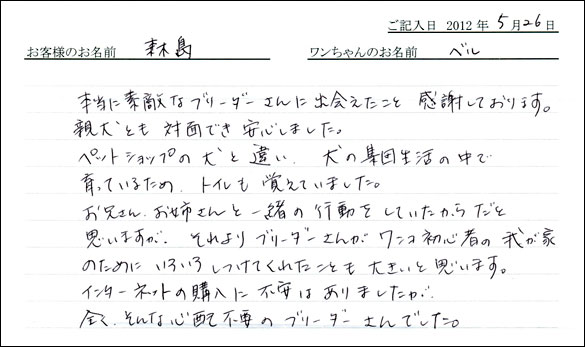 ご記入日 2012年5月26日
お客様のお名前 ワンちゃんのお名前 ベル
本当に素敵なブリーダーさんに出会えたこと 感謝しております。
親犬とも 対面でき 安心しました。
ペットショップの犬と違い、犬の集団生活の中で
育っているため、トイレも覚えていました。
お兄さん、お姉さんと一緒の行動をしていたからだと
思いますが、それよりブリーダーさんが ワンコ初心者の我が家
のために いろいろ しつけてくれたことも 大きいと思います。
インターネットの購入に 不安はありましたが、
全く、そんな心配不要の ブリーダーさんでした。